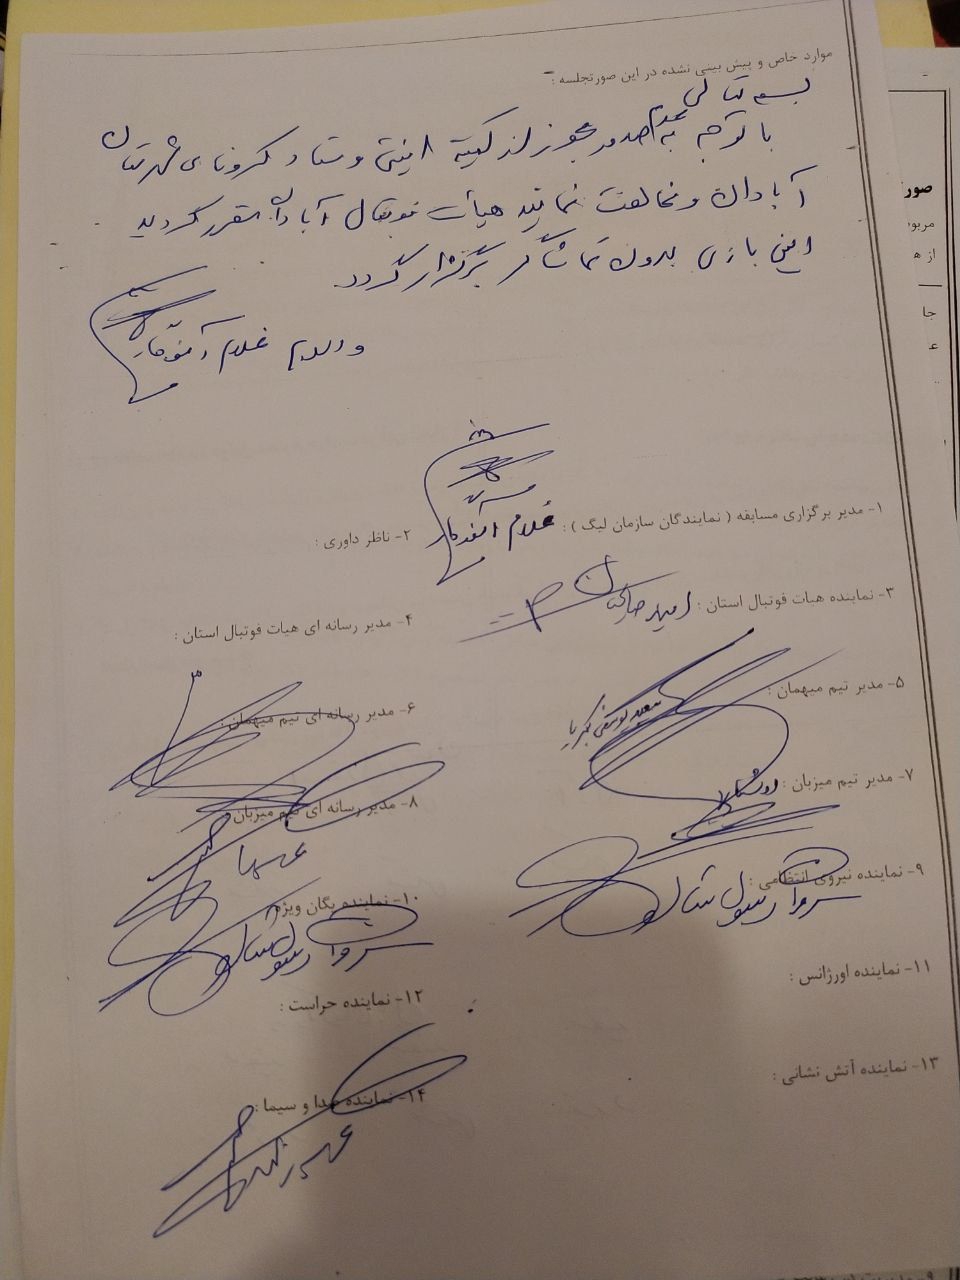 موارد خاص و پیش بینی نشده در این صورتجلسه :
بسمه تعالی
با توجه به عدم صدور مجوز از کمیته امنیتی و ستاد کرونای شهرستان
آبادان و مخالفت نماینده هیأت فوتبال آبادان مقرر گردید
این بازی بدون تماشاگر برگزار گردد.
والسلام غلام
۱- مدیر برگزاری مسابقه ( نمایندگان سازمان لیگ ) : غلام
۲- ناظر داوری :
۳- نماینده هیات فوتبال استان :
۴- مدیر رسانه ای هیات فوتبال استان :
۵- مدیر تیم میهمان :
۶- مدیر رسانه ای تیم میهمان :
۷- مدیر تیم میزبان :
۸- مدیر رسانه ای تیم میزبان :
۹- نماینده نیروی انتظامی :
۱۰- نماینده یگان ویژه :
۱۱- نماینده اورژانس :
۱۲- نماینده حراست :
۱۳- نماینده آتش نشانی :
۱۴- نماینده صدا و سیما :
مربو
از ه
جا